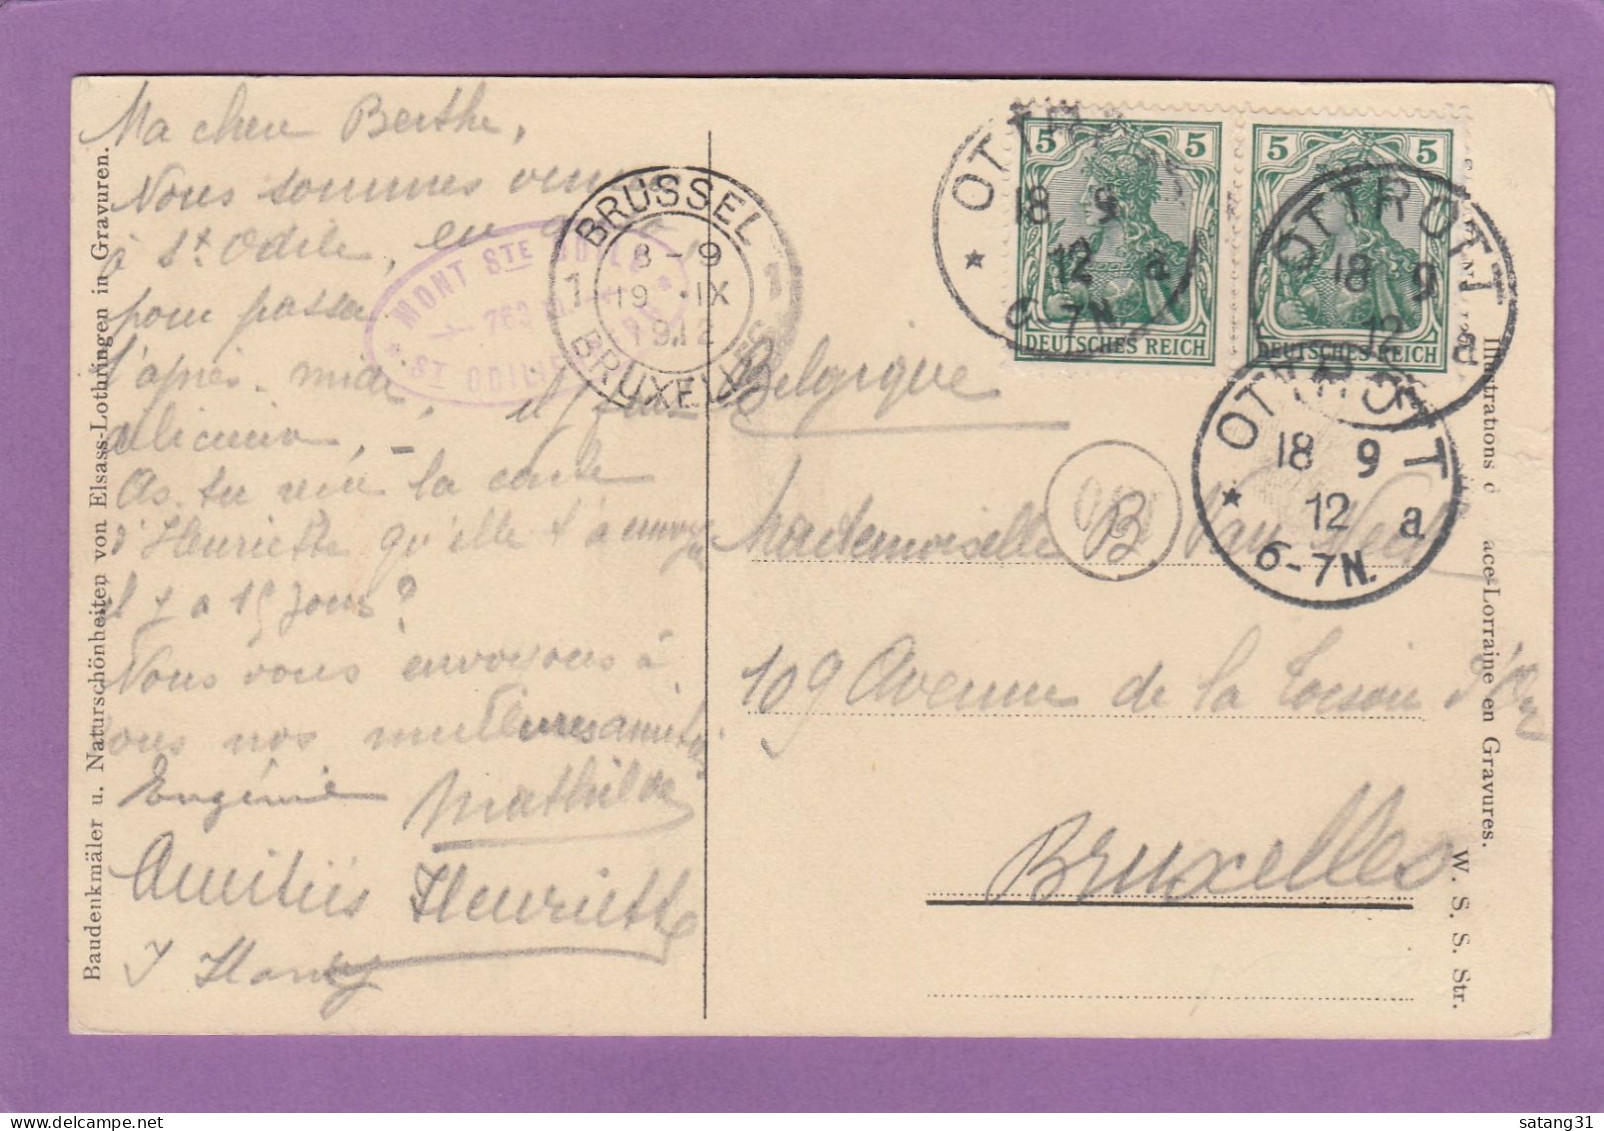 Ma chère Berthe,
Nous sommes venues
à St. Odile, en
pour passer
l'après-midi,
As-tu reçu la carte
d'Henriette qu'elle t'a envoyée
il y a 15 jours?
Nous vous envoyons à
vous nos meilleures amitiés
Eugénie Mathilde
Amitiés Henriette
Baudenkmäler u. Naturschönheiten von Elsass-Lothringen in Gravuren.
MONT STE ODILE
ST ODILIE
BRUSSEL
1 8-9 1
19 IX
1912
BRUXELLES
5 5
DEUTSCHES REICH
5 5
DEUTSCHES REICH
OTTROTT
18 9
12 a
6-7N.
OTTROTT
18 9
12 a
OTTROTT
18 9
12 a
6-7N.
Belgique
Mademoiselle B Van
109 Avenue de la Toison d'Or
Bruxelles
Illustrations ace-Lorraine en Gravures.
W. S. S. Str.
satang31